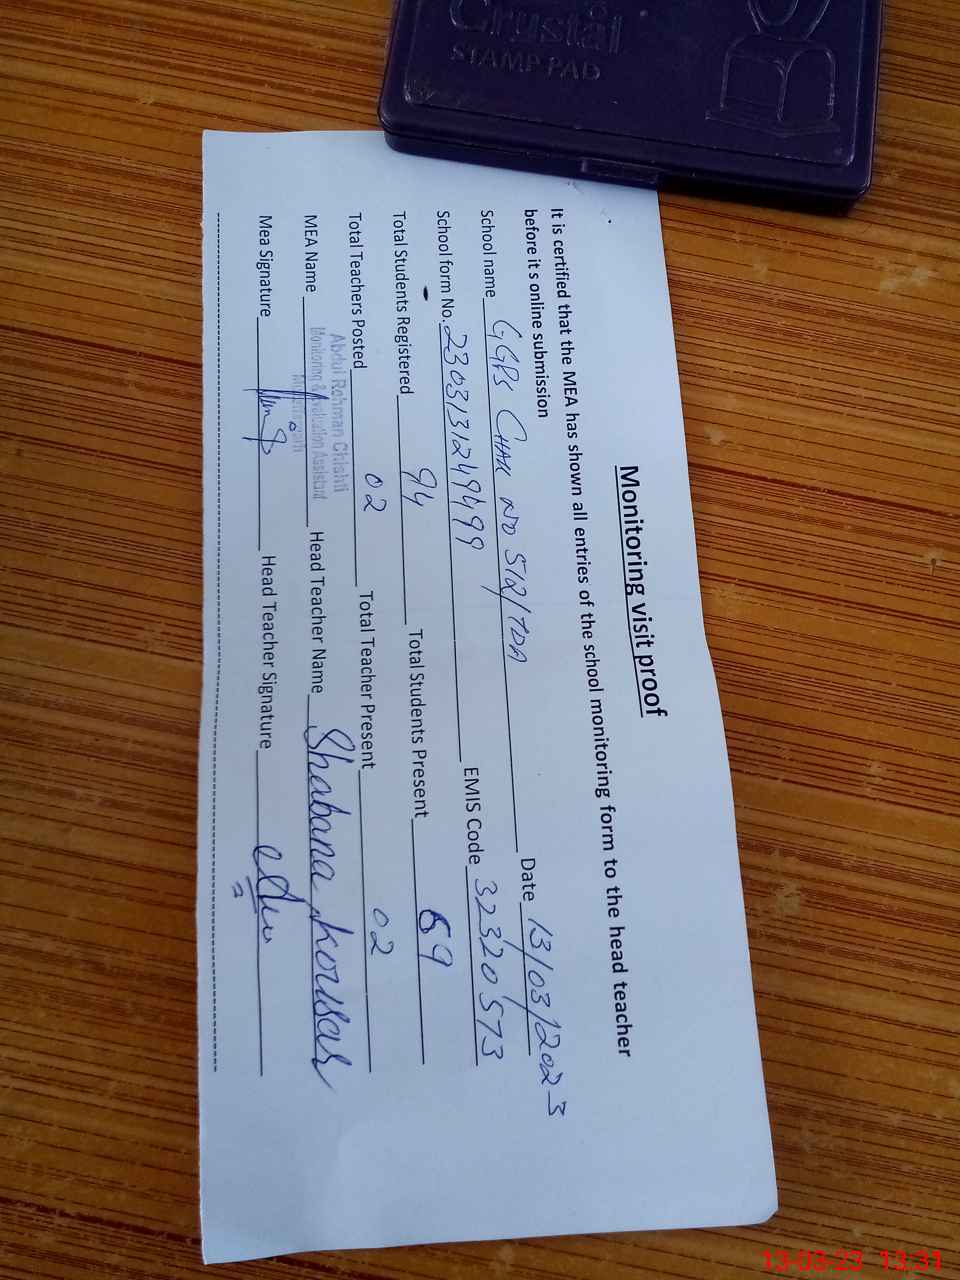 Crystal
STAMP PAD
Monitoring visit proof
It is certified that the MEA has shown all entries of the school monitoring form to the head teacher
before it s online submission
School name GGPS CHAK NO 512/TDA Date 13/03/2023
School form No. 230313124949 EMIS Code 32320573
Total Students Registered 94 Total Students Present 69
Total Teachers Posted 02 Total Teacher Present 02
Abdul Rehman Chishti
Monitoring & Evaluation Assistant
MEA Name Head Teacher Name Shabana kousar
Mea Signature Head Teacher Signature
13-03-23 13:31